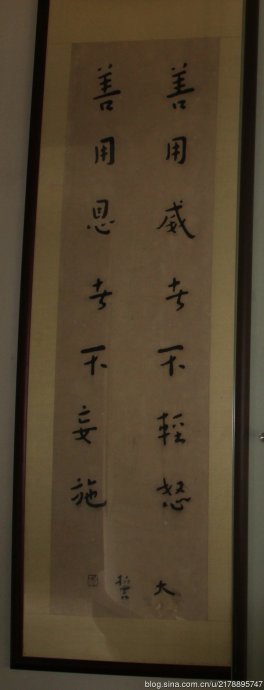 善用威者不輕怒
善用恩者不妄施
大
blog.sina.com.cn/u/2178895747